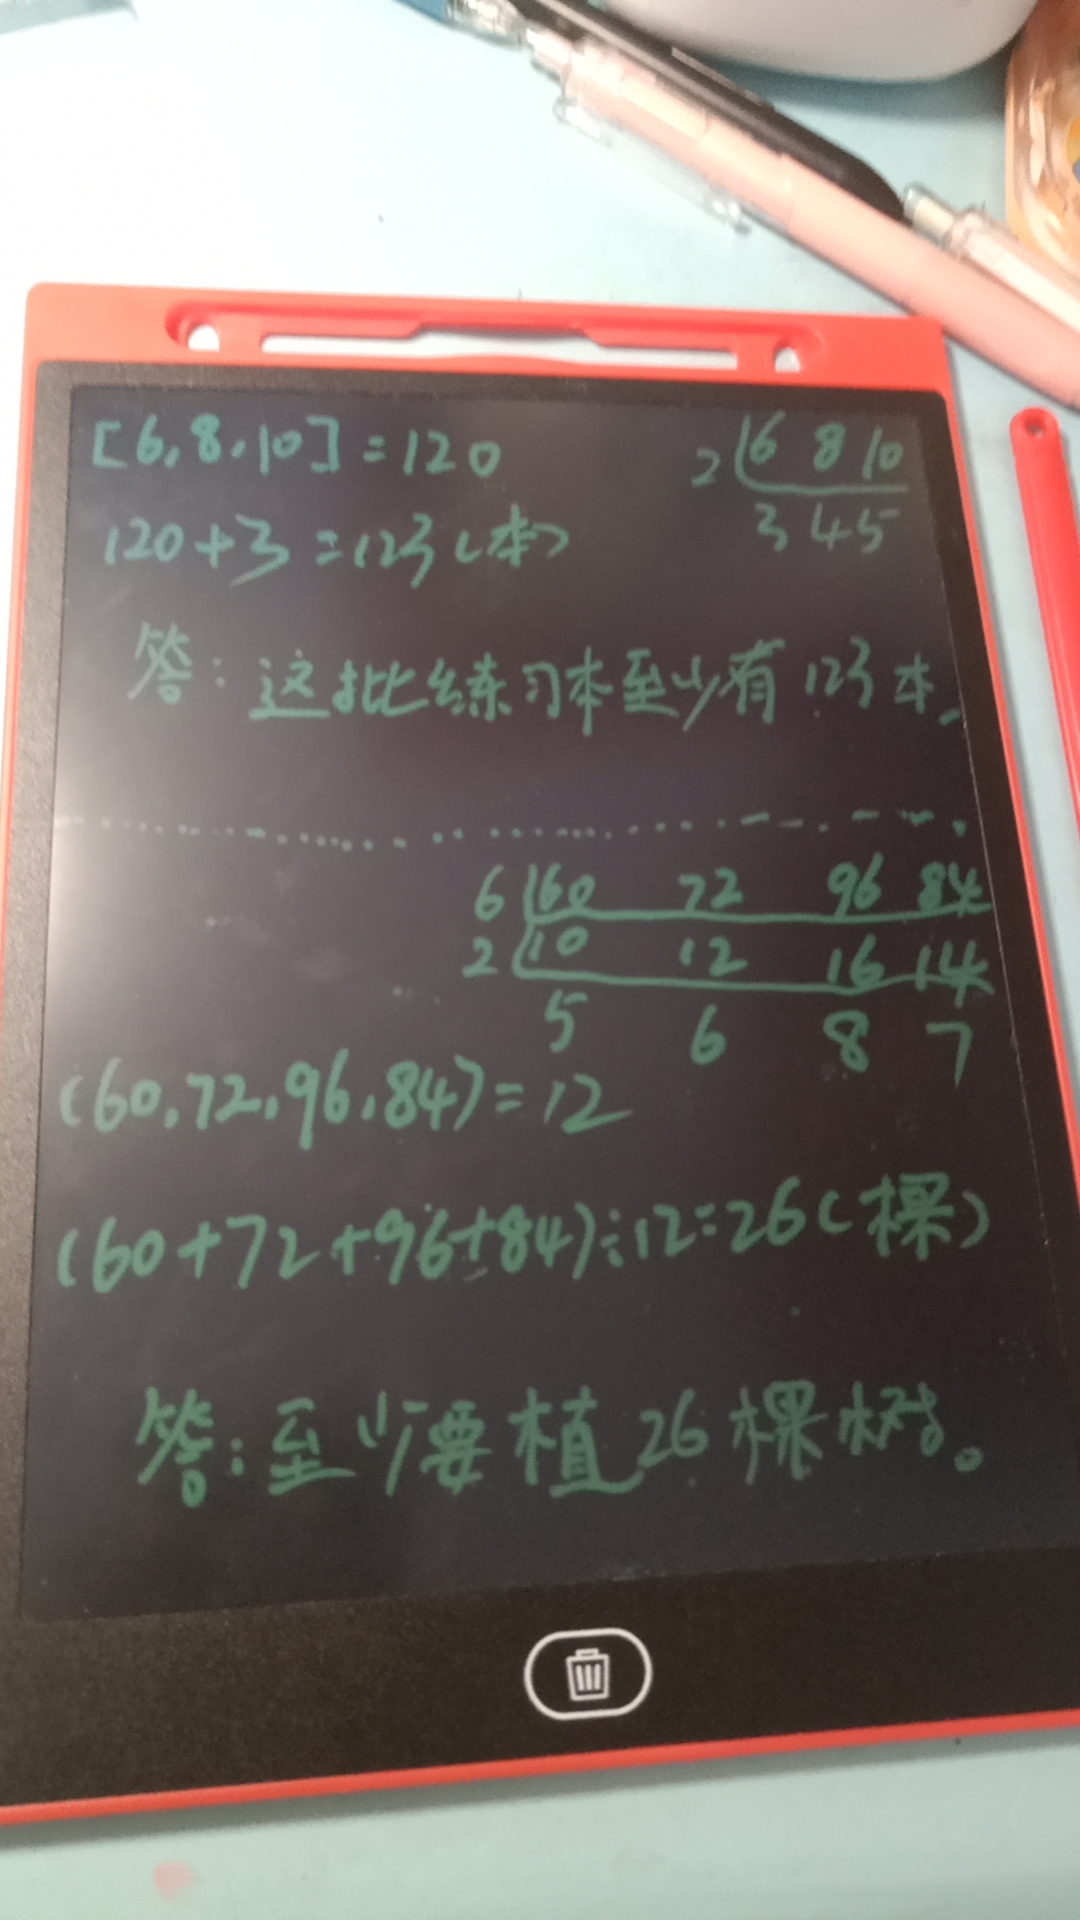 [6,8,10]=120
2 6 8 10
3 4 5
120+3=123(本)
答:这批练习本至少有123本.
6 60 72 96 84
2 10 12 16 14
5 6 8 7
(60,72,96,84)=12
(60+72+96+84)÷12=26(棵)
答:至少要植26棵树。